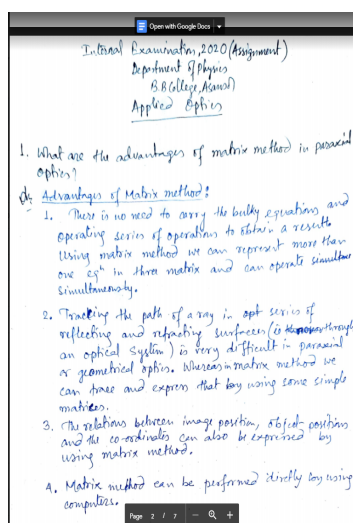 Open with Google Docs
Internal Examination, 2020 (Assignment)
Department of Physics
B.B College, Asansol
Applied Optics
1. What are the advantages of matrix method in paraxial
optics?
Advantages of Matrix method:
1. There is no need to carry the bulky equations and
operating series of operations to obtain a result
Using matrix method we can represent more than
one eqn in three matrix and can operate
simultaneously.
2. Tracking the path of a ray in opt series of
reflecting and refracting surfaces (ie through
an optical system) is very difficult in paraxial
or geometrical optics. Whereas in matrix method we
can trace and express that by using some simple
matrices.
3. The relations between image position, object positions
and the co-ordinates can also be expressed by
using matrix method.
4. Matrix method can be performed directly by using
computers.
Page 2 / 7